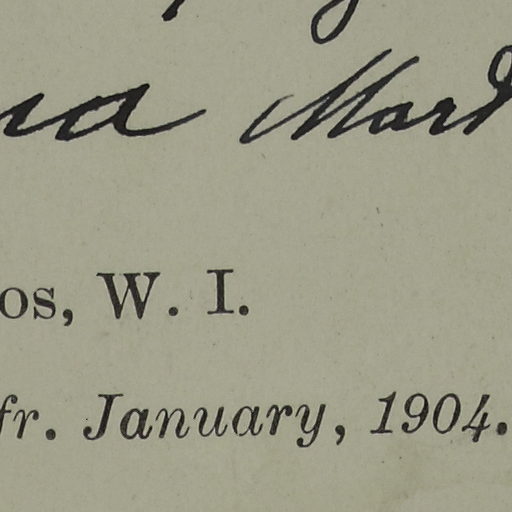 na Mard
os, W. I.
fr. January, 1904.